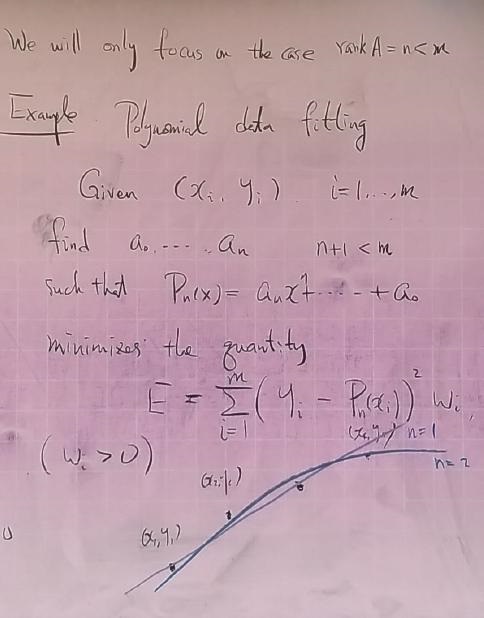 We will only focus on the case rank A = n < m
Example. Polynomial data fitting
Given (xᵢ, yᵢ) i=1,...,m
find a₀, ..., aₙ n+1 < m
such that Pₙ(x) = aₙxⁿ + ... + a₀
minimizes the quantity
E = Σᵢ₌₁ᵐ (yᵢ − Pₙ(xᵢ))² wᵢ,
(wᵢ > 0)
n=1
n=2
(x₁, y₁)